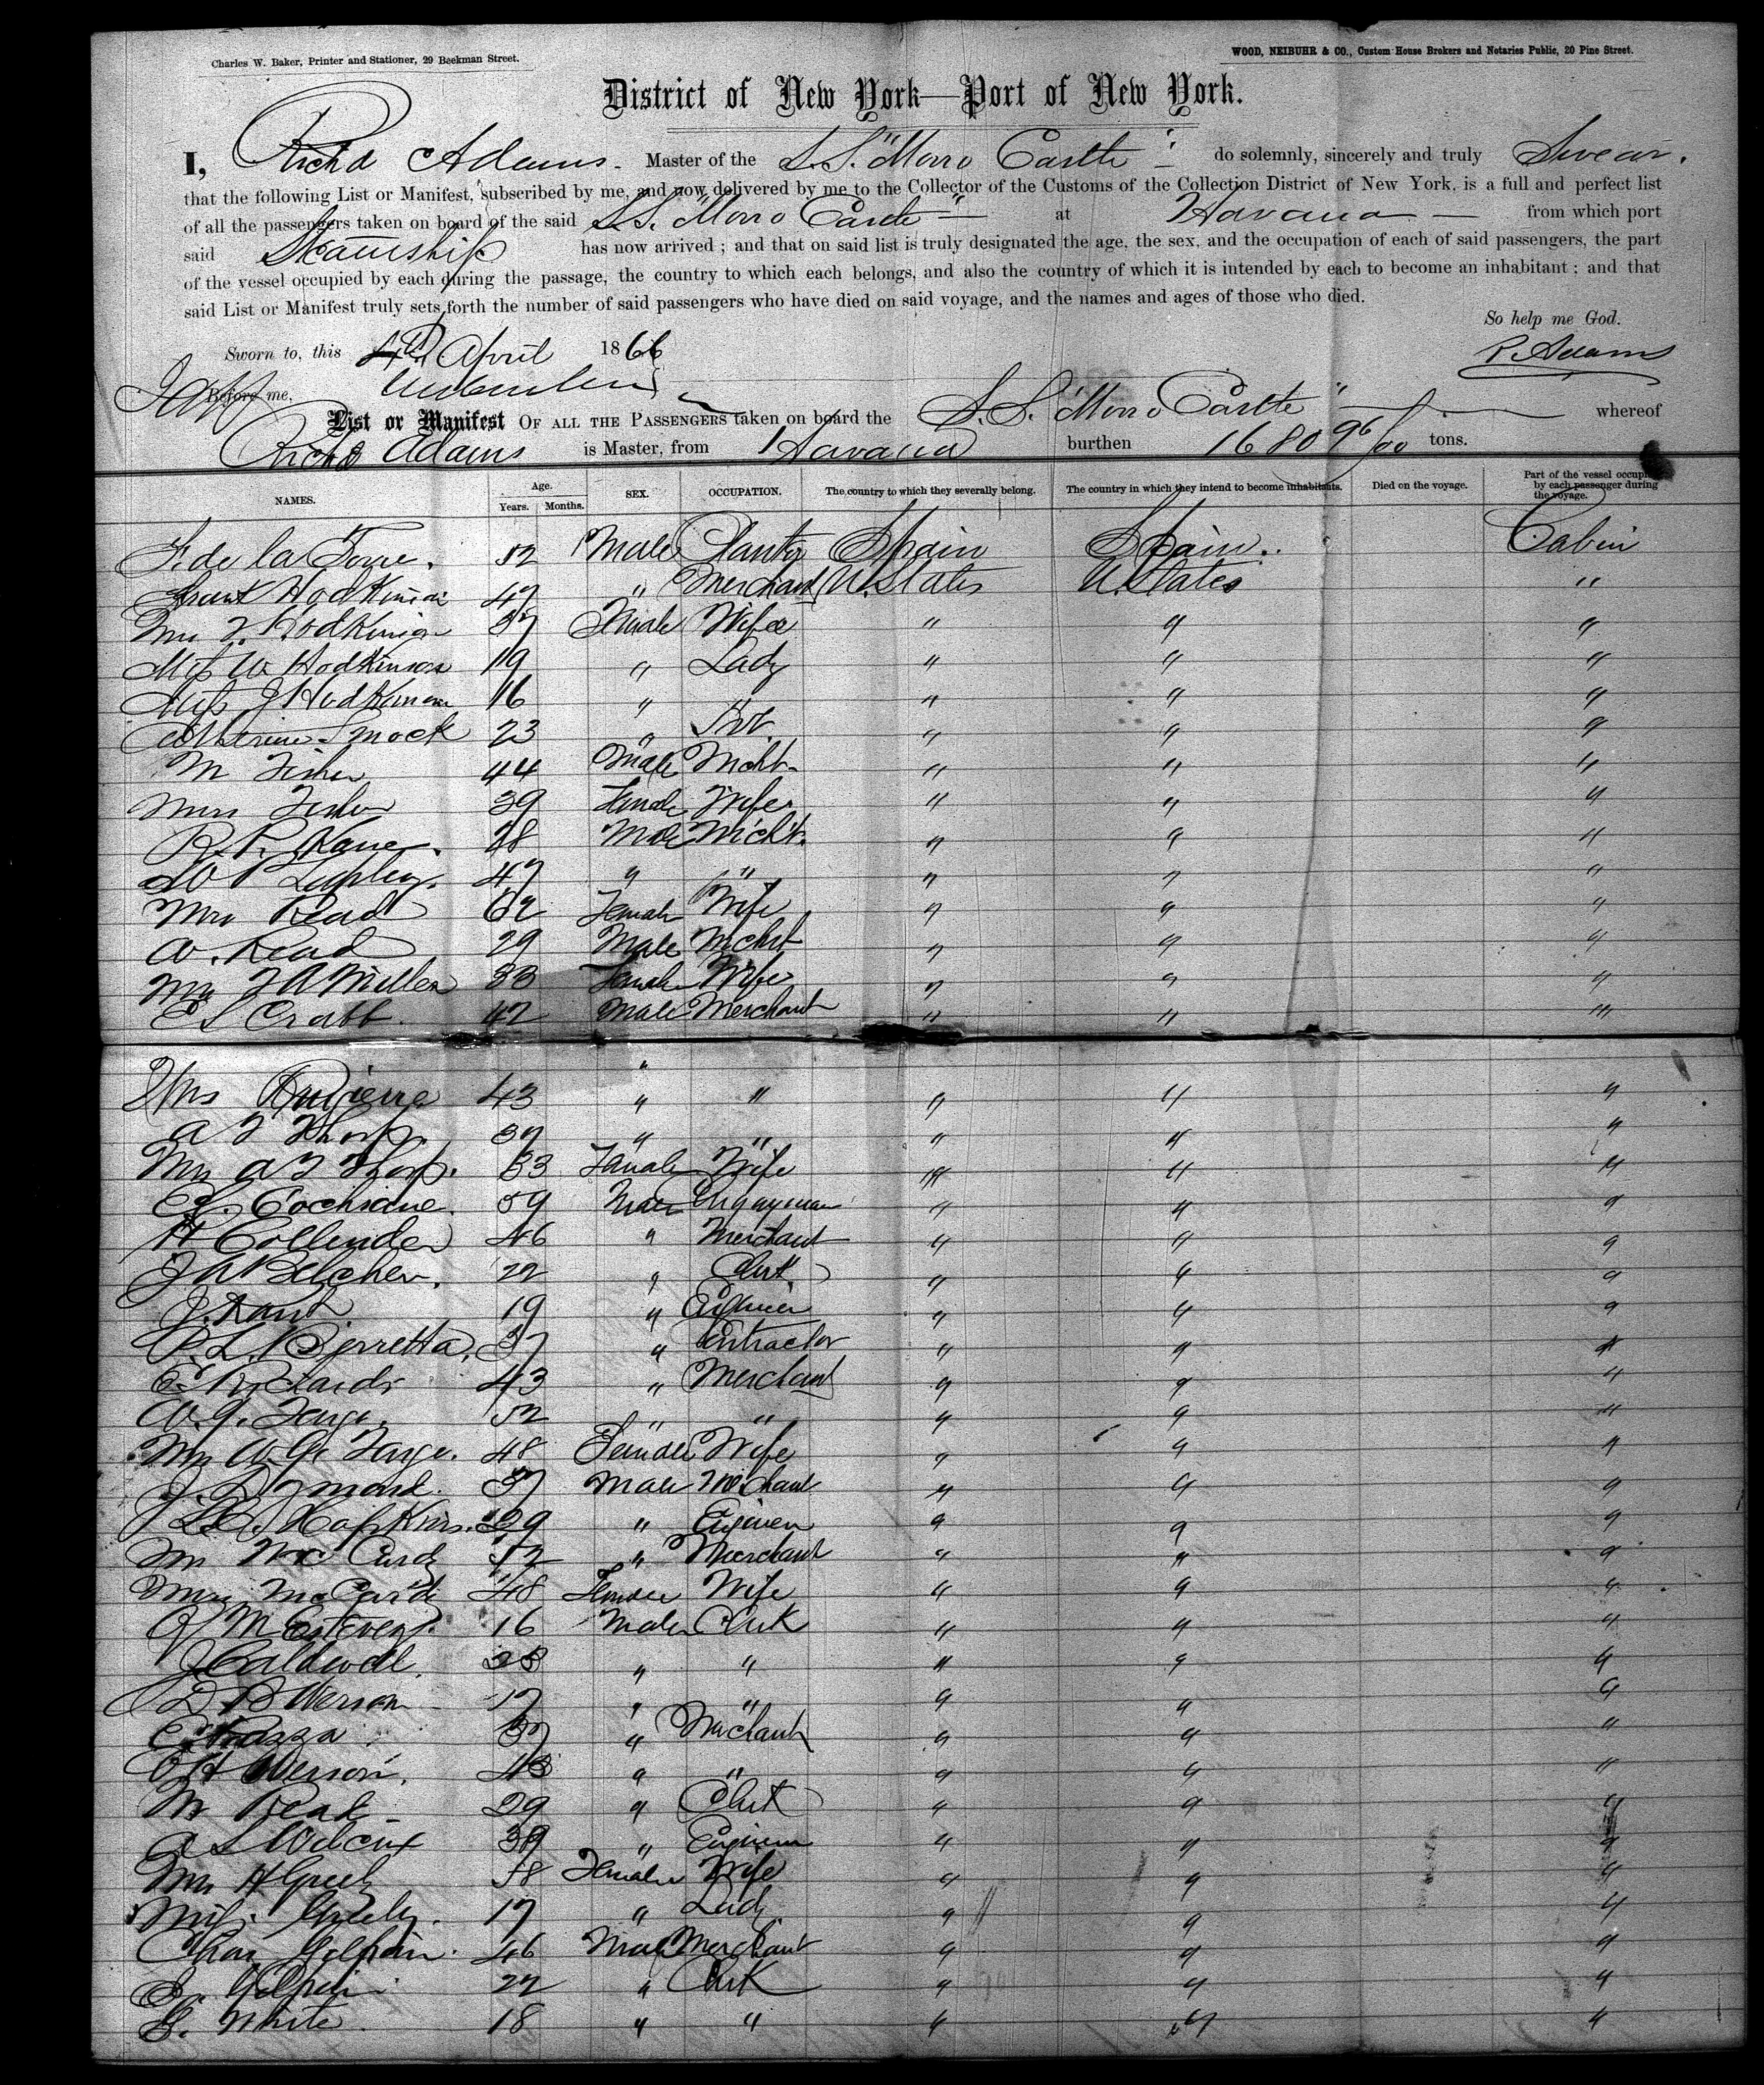 Charles W. Baker, Printer and Stationer, 29 Beekman Street.
WOOD, NEIBUHR & CO., Custom House Brokers and Notaries Public, 20 Pine Street.
District of New York—Port of New York.
I, Richd Adams. Master of the S.S. "Morro Castle" do solemnly, sincerely and truly Swear.
that the following List or Manifest, subscribed by me, and now delivered by me to the Collector of the Customs of the Collection District of New York, is a full and perfect list
of all the passengers taken on board of the said S.S. "Morro Castle" at Havana from which port
said Steamship has now arrived; and that on said list is truly designated the age, the sex, and the occupation of each of said passengers, the part
of the vessel occupied by each during the passage, the country to which each belongs, and also the country of which it is intended by each to become an inhabitant; and that
said List or Manifest truly sets forth the number of said passengers who have died on said voyage, and the names and ages of those who died.
So help me God.
Sworn to, this 4th April 1866
R. Adams
Before me,
List or Manifest OF ALL THE PASSENGERS taken on board the S.S. "Morro Castle" whereof
Richd Adams is Master, from Havana burthen 1680 96/00 tons.
NAMES. Age. Years. Months. SEX. OCCUPATION. The country to which they severally belong. The country in which they intend to become inhabitants. Died on the voyage. Part of the vessel occupied by each passenger during the voyage.
F. de la Torre. 52 Male Planter Spain Spain. Cabin
Hodkinson 47 " Merchant U. States U. States "
Mrs Hodkinson 37 Female Wife " " "
Miss W Hodkinson 19 " Lady " " "
Miss J Hodkinson 16 " " " " "
Catherine Smock 23 " Svt. " " "
M Fisher 44 Male Mcht. " " "
Mrs Fisher 39 Female Wife " " "
R. P. Kane. 28 Male Mcht. " " "
W P 47 " " " " "
Mrs Read 62 Female Wife " " "
W. Read 29 Male Mcht " " "
Mrs F A Miller 33 Female Wife " " "
E S Crabb. 42 Male Merchant " " "
43 " " " " "
A F Thorp. 37 " " " " "
Mrs A F Thorp. 33 Female Wife " " "
Cochrane. 59 Male Clergyman " " "
H Collender 46 " Merchant " " "
J A Belcher. 22 " Clerk " " "
J. 19 " Engineer " " "
P. L. 37 " Contractor " " "
E Richards 43 " Merchant " " "
W. G. Fargo. 52 " " " " "
Mrs W. G. Fargo. 48 Female Wife " " "
J. Dymond. 37 Male Merchant " " "
Hopkins. 29 " Engineer " " "
M McCurdy 52 " Merchant " " "
Mrs McCurdy 48 Female Wife " " "
M Estevez. 16 Male Clerk " " "
J Caldwell. 28 " " " " "
D B 17 " " " " "
37 " Merchant " " "
43 " " " " "
M 29 " Clerk " " "
A S Wilcox 39 " Engineer " " "
Mrs H Greely 58 Female Wife " " "
Miss Greely. 17 " Lady " " "
Chas Gilpin. 46 Male Merchant " " "
Gilpin. 22 " Clerk " " "
G. White. 18 " " " " "